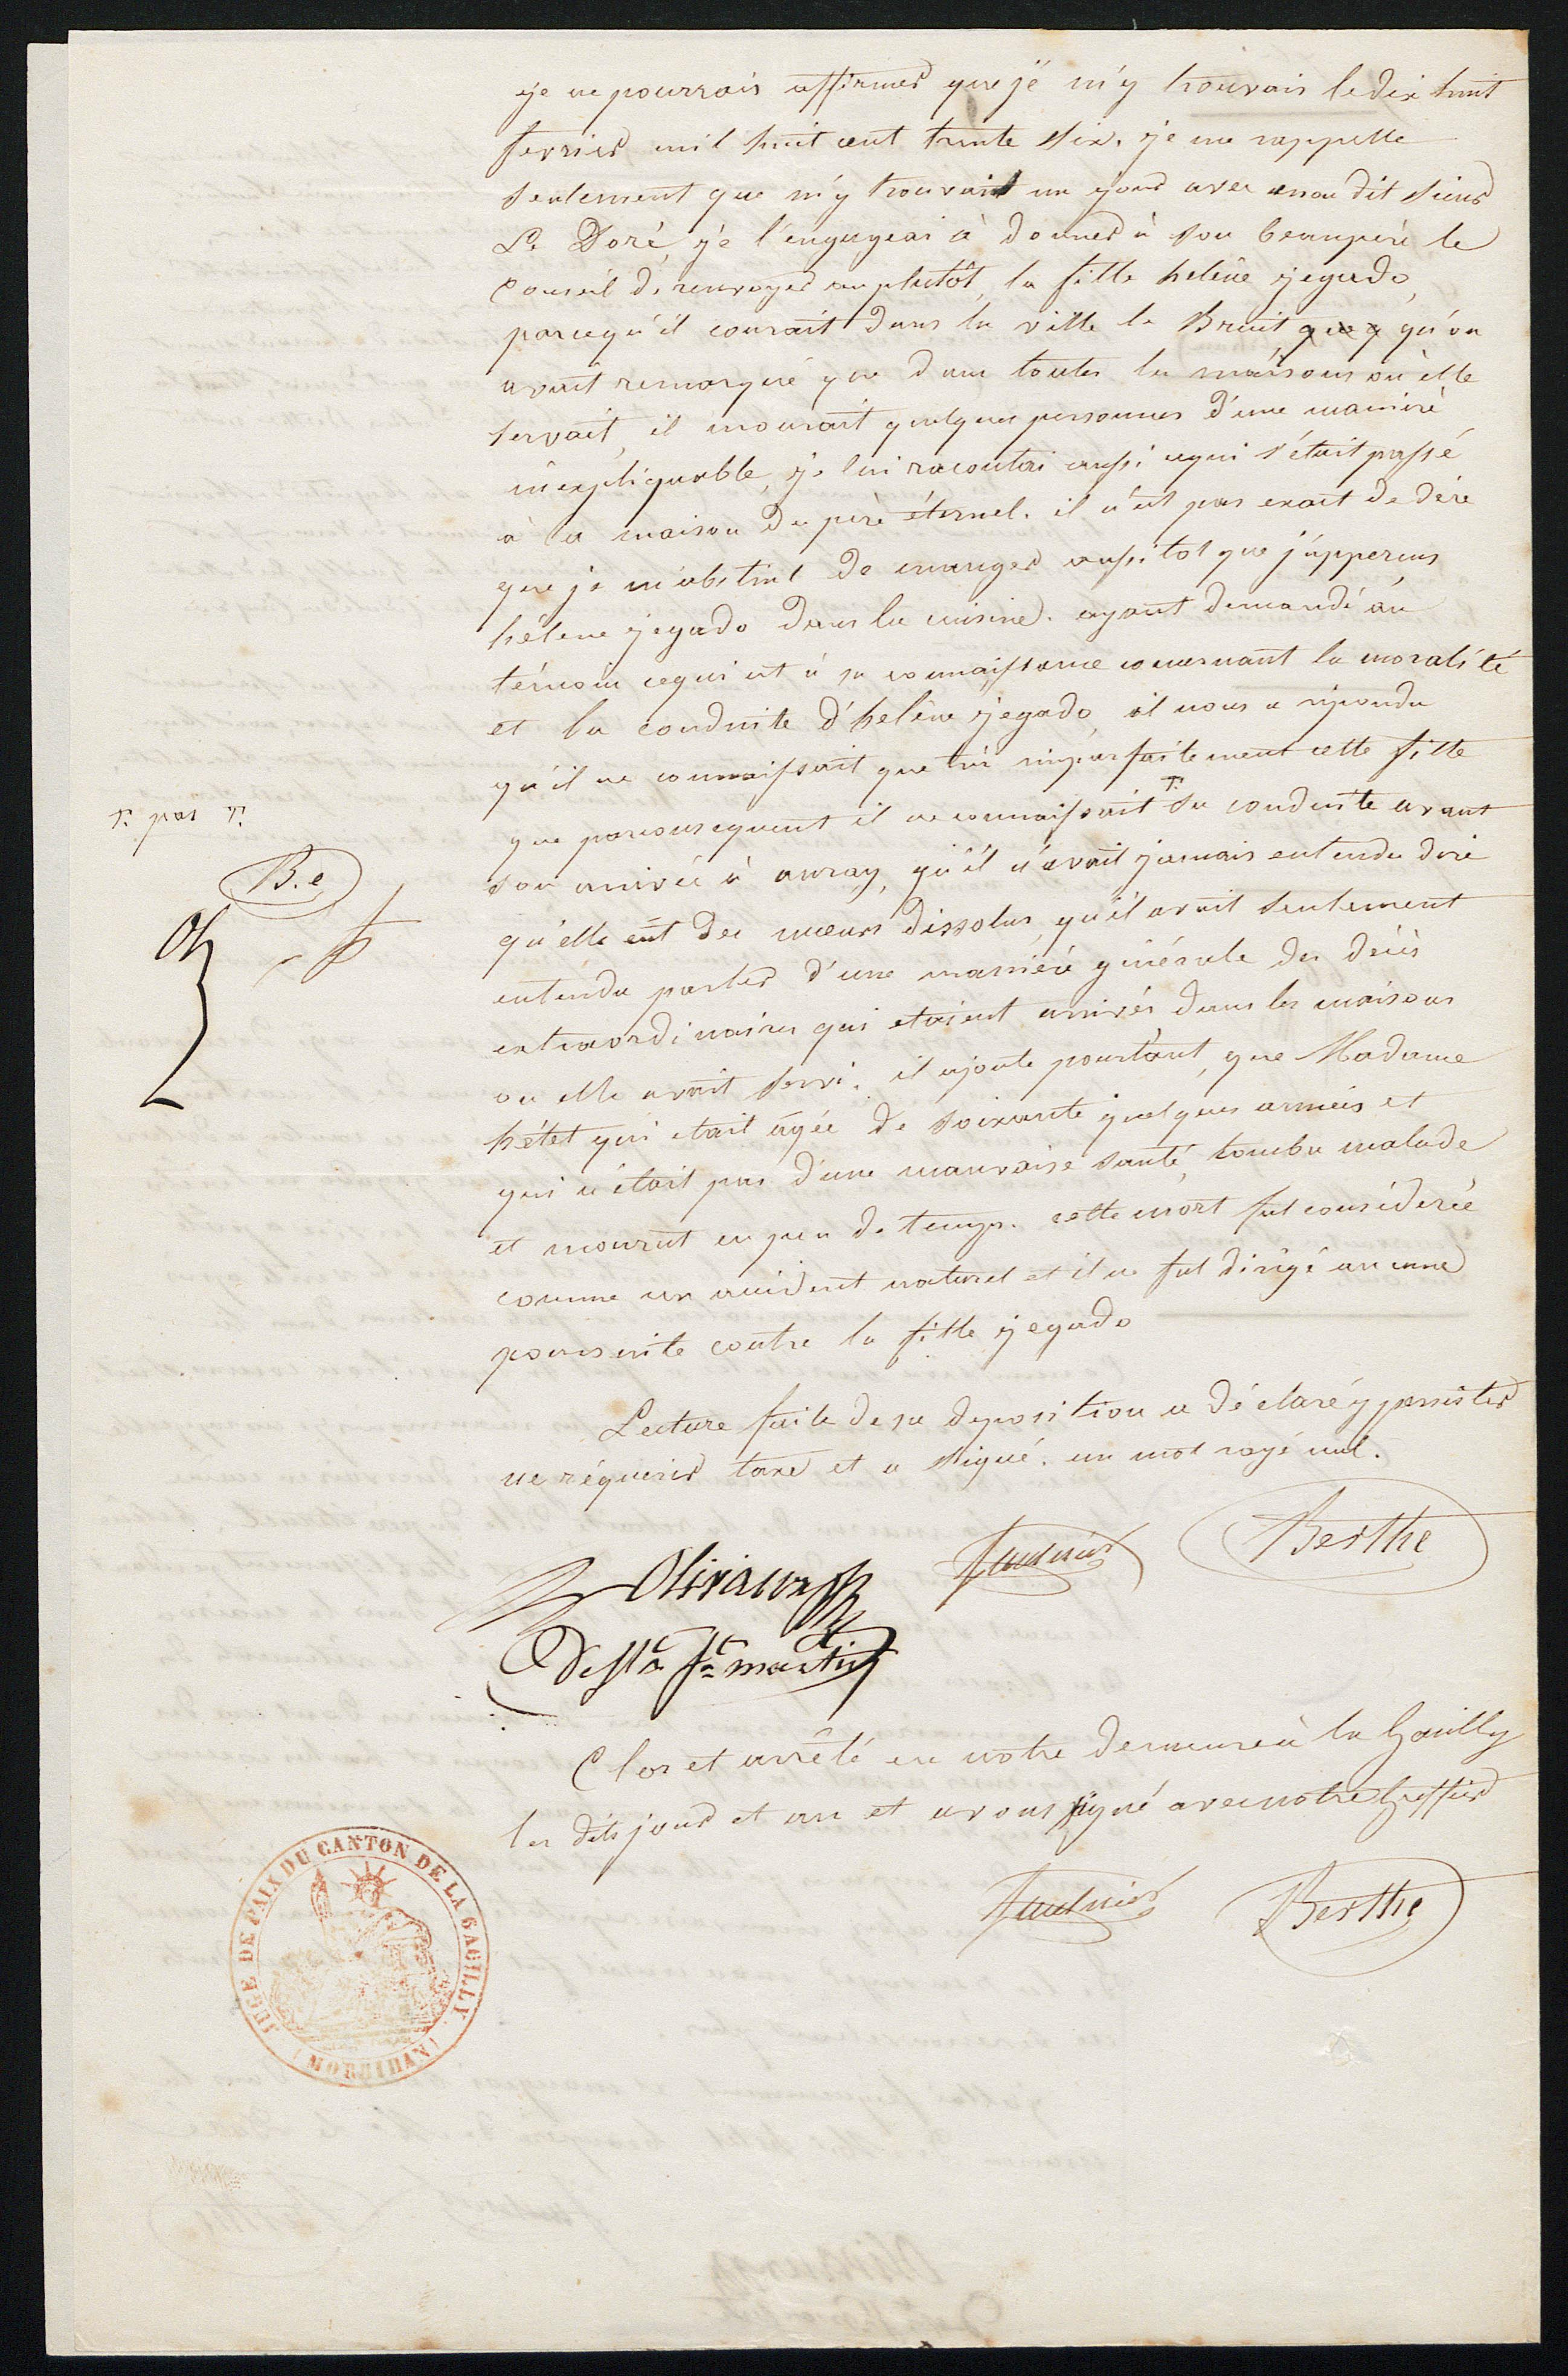 je ne pourrais affirmer que je m'y trouvais le dix huit
fevrier mil huit cent trente six. je me rappelle
seulement que m'y trouvant un jour avec mon dit sieur
Le Doré, je l'engageai à donner à son beaupère le
Conseil de renvoyer au plutôt, la fille helène jegado,
parcequ'il courait dans la ville le Bruit que q qu'on
avait remarqué que dans toutes les maisons où elle
servait, il mourait quelques personnes d'une manière
inexpliquable, je lui racontai aussi cequi s'était passé
à la maison du père éternel. il n'est pas exact de dire
que je m'abstint de manger aussitot que j'apperçus
hélene jegado dans la cuisine. ayant demandé au
témoin cequi est à sa connaissance concernant la moralité
et la conduite d'helène jegado, il nous a répondu
qu'il ne connaissait que très imparfaitement cette fille
que parconsequent il ne connaissait sa conduite avant
pas
B.e
son arrivée à auray, qu'il n'avait jamais entendu dire
qu'elle eût des mœurs dissolus, qu'il avait seulement
entendu parler d'une manière générale des décès
extraordinaires qui etaient arrivés dans les maisons
ou elle avait servi. il ajoute pourtant, que Madame
hétet qui etait âgée de soixante quelques années et
qui n'était pas d'une mauvaise santé, tomba malade
et mourut en peu de temps. cette mort fut considérée
comme un accident naturel et il ne fut dirigé aucune
poursuite contre la fille jegado
Lecture faite de sa deposition a déclaré y persister
ne réquerir taxe et a signé. un mot rayé nul.
Berthe
martin
Clos et arrêté en notre demeure à la Gacilly
les dits jour et an et avons signé avec notre Greffier
Berthe
JUGE DE PAIX DU CANTON DE LA GACILLY
(MORBIHAN)